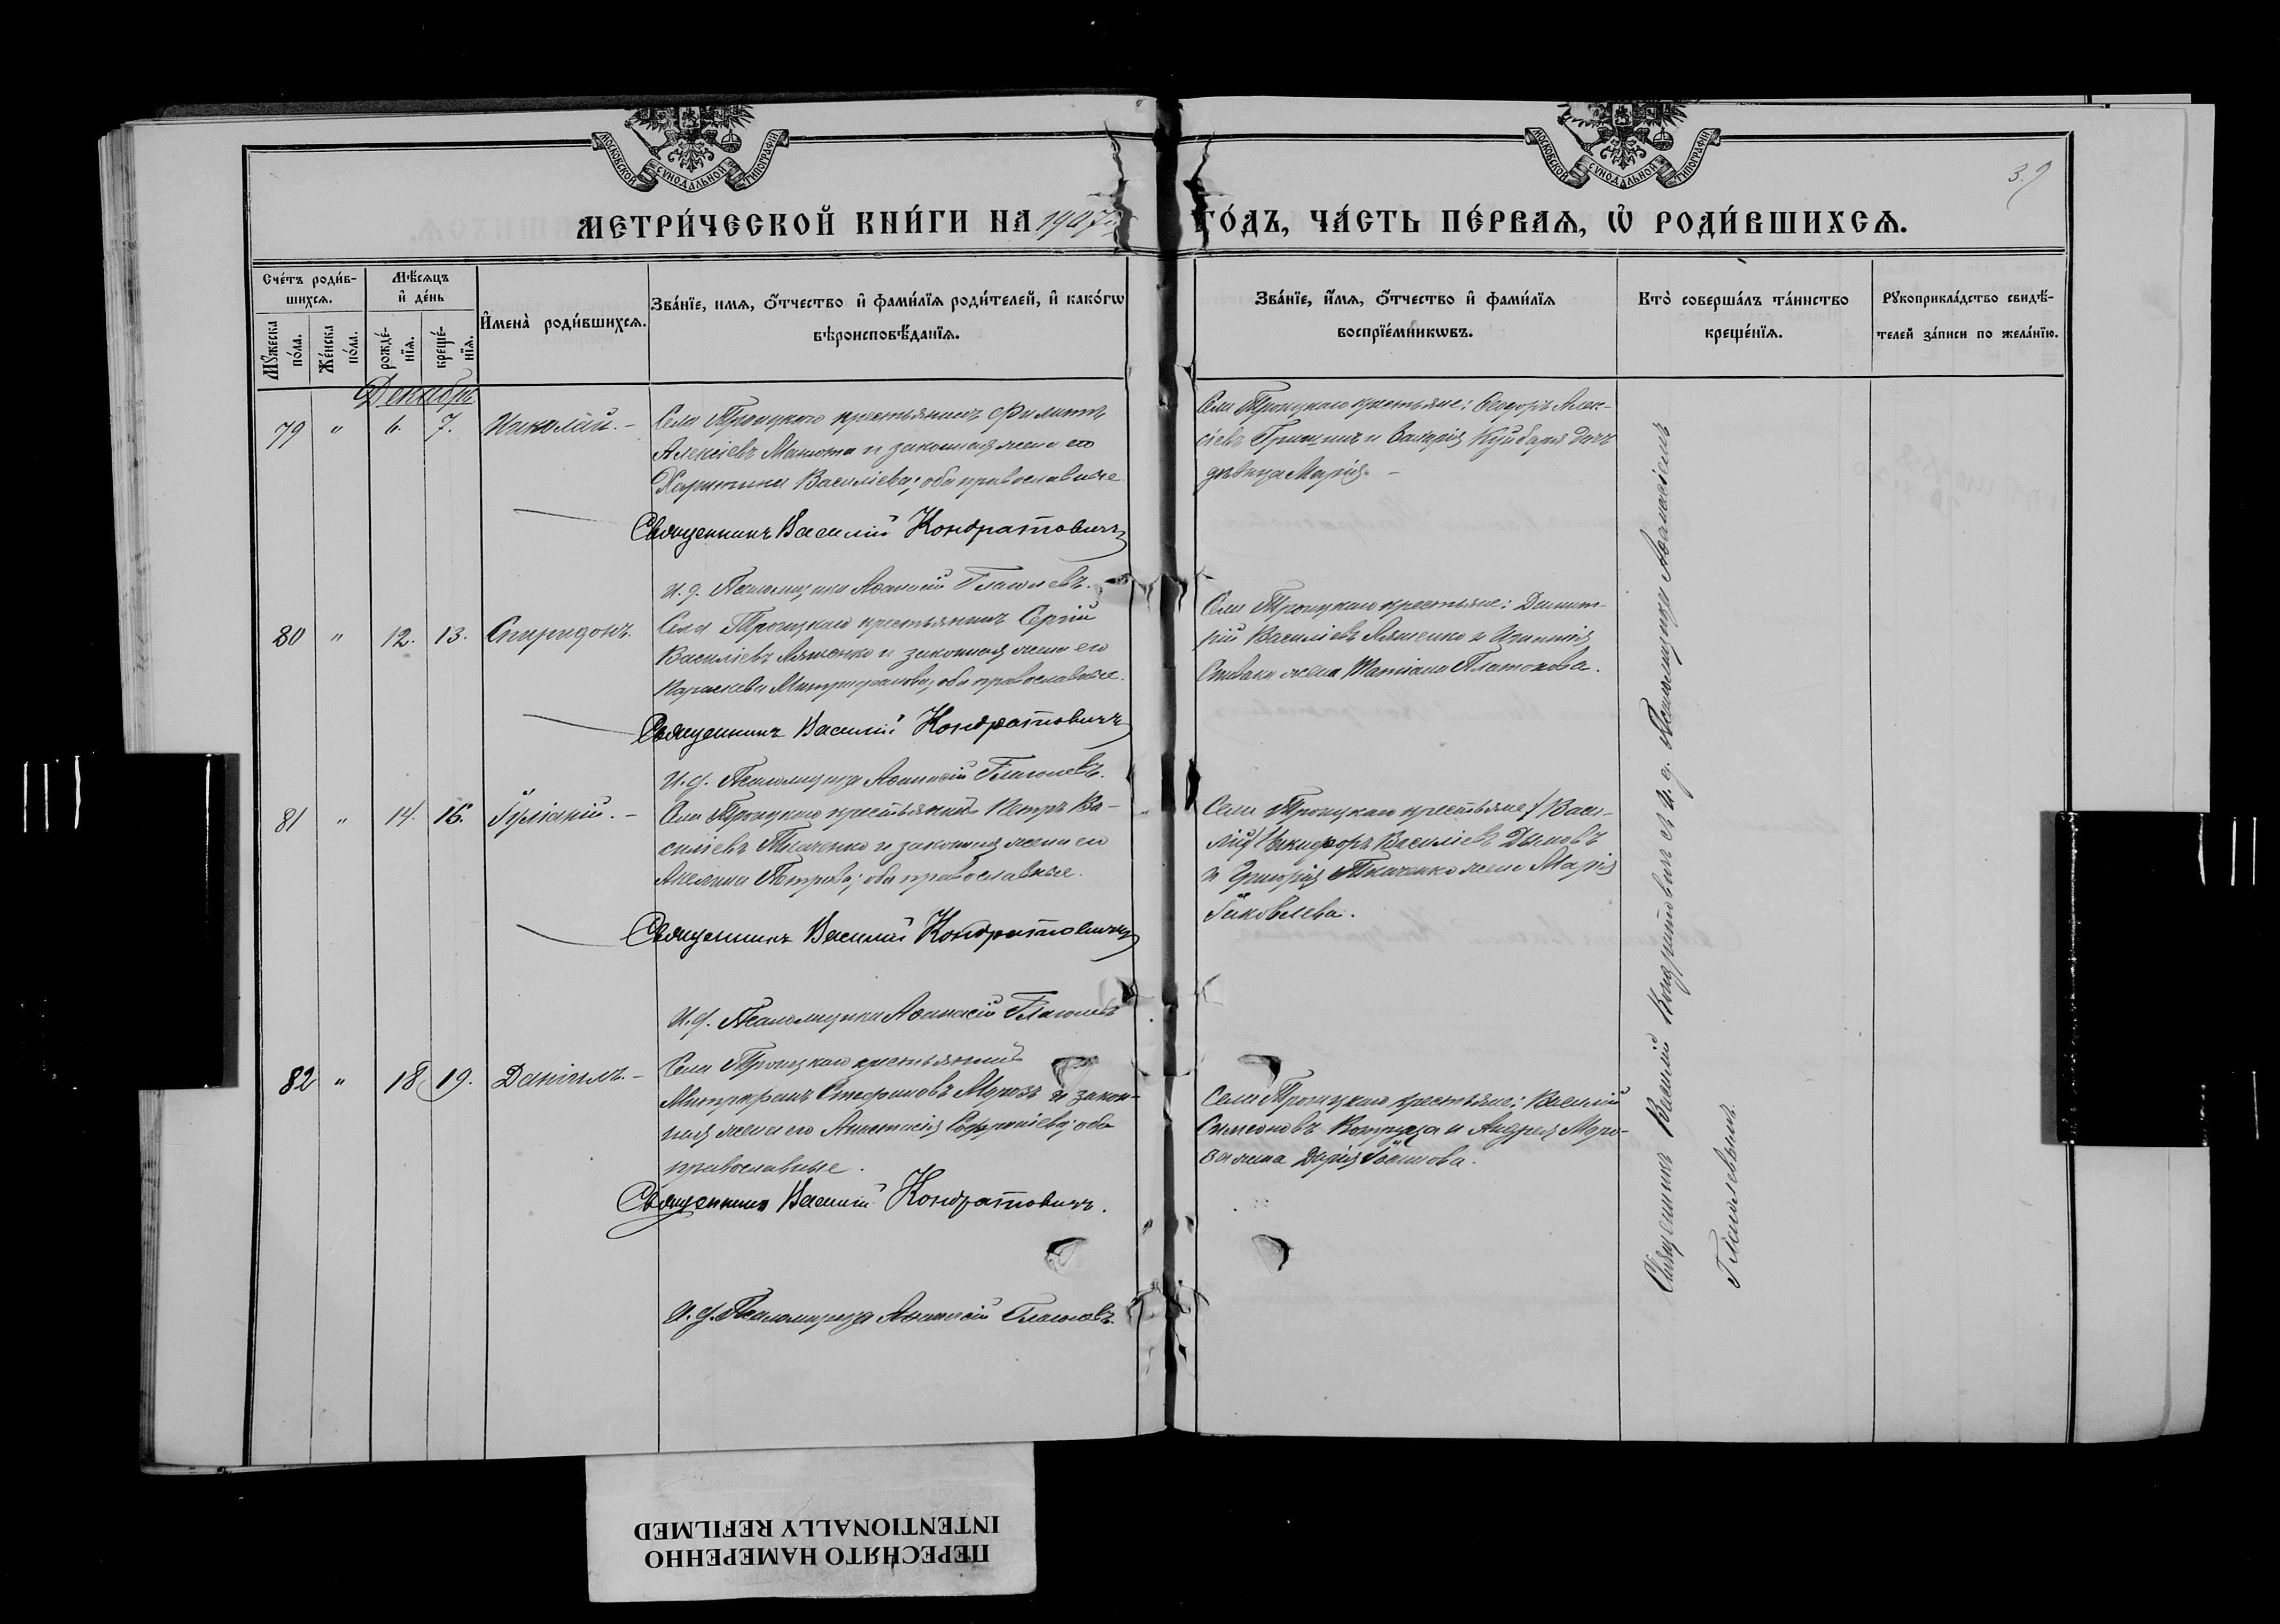 МОСКОВСКОЙ СУНОДАЛЬНОЙ ТИПОГРАФІИ
МОСКОВСКОЙ СУНОДАЛЬНОЙ ТИПОГРАФІИ
МЕТРИ́ЧЕСКОЙ КНИ́ГИ НА 1907 ГО́ДЪ, ЧА́СТЬ ПЕ́РВАѦ, Ѡ҆ РОДИ́ВШИХСѦ.
Сче́тъ роди́в-
шихсѧ.
Мꙋ́жеска
по́ла.
Же́нска
по́ла.
Мѣ́сѧцъ
и҆ де́нь
рожде́-
нїѧ.
креще́-
нїѧ.
И҆мена̀ роди́вшихсѧ.
Зва́нїе, имѧ, ѻ҆́тчество и҆ фами́лїѧ роди́телей, и҆ како́гѡ
вѣроисповѣ́данїѧ.
Зва́нїе, и҆́мѧ, ѻ҆́тчество и҆ фами́лїѧ
воспрїе́мникѡвъ.
Кто̀ соверша́лъ та́инство
креще́нїѧ.
Рꙋкоприкла́дство свидѣ́-
телей за́писи по жела́нїю.
Декабрь
79 " 6. 7. Николай. –
Села Троицкаго крестьянинъ Филиппъ
Алексіевъ Манюта и законная жена его
Харитина Василіева; оба православные
Священникъ Василій Кондратовичъ
И. д. Псаломщика Аѳанасій Глаголевъ.
Села Троицкаго крестьяне: Ѳеодоръ Алек-
сіевъ и Валерія дочь
дѣвица Марія. –
80 " 12. 13. Спиридонъ.
Села Троицкаго крестьянинъ Сергій
Василіевъ Ляшенко и законная жена его
Параскева Митрофанова; оба православные.
Священникъ Василій Кондратовичъ
И. д. Псаломщика Аѳанасій Глаголевъ.
Села Троицкаго крестьяне: Димит-
рій Василіевъ Ляшенко и Игнатія
Спивака жена Татіана Платонова.
81 " 14. 16. Іуліаній. –
Села Троицкаго крестьянинъ Петръ Ва-
силіевъ Ткаченко и законная жена его
Акелина Петрова; оба православные.
Священникъ Василій Кондратовичъ
И. д. Псаломщика Аѳанасій Глаголевъ
Села Троицкаго крестьяне / Васи-
лій / Никифоръ Василіевъ Дыновъ
и Григорія Ткаченко жена Марія
Іаковлева.
82 " 18 19. Даніилъ. –
Села Троицкаго крестьянинъ
Митрофанъ Стефановъ Морозъ и закон-
ная жена его Анастасія Софроніева; оба
православные.
Священникъ Василій Кондратовичъ.
И. д. Псаломщика Аѳанасій Глаголевъ.
Села Троицкаго крестьяне: Василій
Симеоновъ и Андрея Моро-
за жена Дарія Іоаннова.
Священникъ Василій Кондратовичъ съ и. д. Псаломщика Аѳанасіемъ
Глаголевымъ.
ПЕРЕСНЯТО НАМЕРЕННО
INTENTIONALLY REFILMED